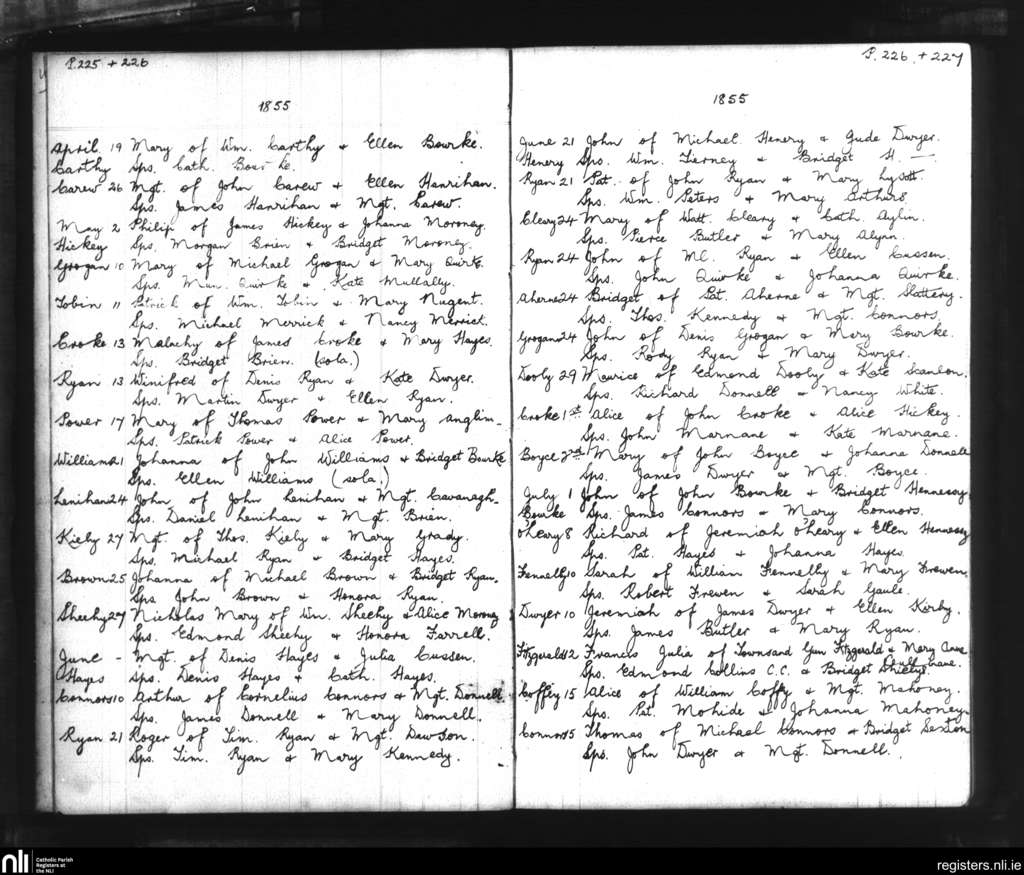 P. 225 + 226
1855
April 19 Mary of Wm. Carthy & Ellen Bourke.
Carthy Sps. Cath. Bourke.
Carew 26 Mgt. of John Carew & Ellen Hanrihan.
Sps. James Hanrihan & Mgt. Carew.
May 2 Philip of James Hickey & Johanna Moroney.
Hickey Sps. Morgan Brien & Bridget Moroney.
Grogan 10 Mary of Michael Grogan & Mary Quirke.
Sps. Quirke & Kate Mullally.
Tobin 11 Patrick of Wm. Tobin & Mary Nugent.
Sps. Michael Merrick & Nancy Merrick.
Croke 13 Malachy of James Croke & Mary Hayes.
Sps. Bridget Brien. (sola.)
Ryan 13 Winifred of Denis Ryan & Kate Dwyer.
Sps. Martin Dwyer & Ellen Ryan.
Power 17 Mary of Thomas Power & Mary Anglim.
Sps. Patrick Power & Alice Power.
Williams 21 Johanna of John Williams & Bridget Bourke
Sps. Ellen Williams (sola.)
Lenihan 24 John of John Lenihan & Mgt. Cavanagh.
Sps. Daniel Lenihan & Mgt. Brien.
Kiely 27 Mgt of Thos. Kiely & Mary Grady.
Sps. Michael Ryan & Bridget Hayes.
Brown 25 Johanna of Michael Brown & Bridget Ryan.
Sps John Brown & Honora Ryan.
Sheehy 27 Nicholas Mary of Wm. Sheehy & Alice Moroney
Sps. Edmond Sheehy & Honora Farrell.
June - Mgt. of Denis Hayes & Julia Cussen.
Hayes Sps. Denis Hayes & Cath. Hayes.
Connors 10 Arthur of Cornelius Connors & Mgt. Donnell
Sps. James Donnell & Mary Donnell.
Ryan 21 Roger of Tim. Ryan & Mgt Dawson.
Sps. Tim. Ryan & Mary Kennedy.
P. 226 + 227
1855
June 21 John of Michael Henery & Gude Dwyer.
Henery Sps. Wm. Tierney & Bridget H. —
Ryan 21 Pat. of John Ryan & Mary Lysott.
Sps. Wm. Peters & Mary Arthurs
Cleary 24 Mary of Watt. Cleary & Cath. Aylin.
Sps. Pierce Butler & Mary
Ryan 24 John of Ml. Ryan & Ellen Cussen.
Sps. John Quirke & Johanna Quirke.
Aherne 24 Bridget of Pat. Aherne & Mgt. Slattery.
Sps. Thos. Kennedy & Mgt. Connors.
Grogan 24 John of Denis Grogan & Mary Bourke.
Sps. Rody Ryan & Mary Dwyer.
Dooly 29 Maurice of Edmond Dooly & Kate Scanlon.
Sps. Richard Donnell & Nancy White.
Croke 1st Alice of John Croke & Alice Hickey.
Sps. John Marnane & Kate Marnane.
Boyce 2nd Mary of John Boyce & Johanna Donnell
Sps. James Dwyer & Mgt. Boyce.
July 1 John of John Bourke & Bridget Hennessy.
Bourke Sps. James Connors & Mary Connors.
O'Leary 8 Richard of Jeremiah O'Leary & Ellen Hennessy
Sps. Pat. Hayes & Johanna Hayes.
Fennelly 10 Sarah of William Fennelly & Mary Frewen.
Sps. Robert Frewen & Sarah Gayle.
Dwyer 10 Jeremiah of James Dwyer & Ellen Kirby.
Sps. James Butler & Mary Ryan.
Fitzgerald 12 Francis Julia of Townsand Gun Fitzgerald & Mary Anne
Sps. Edmond Collins C.C. & Bridget
Coffey 15 Alice of William Coffy & Mgt. Mahoney.
Sps. Pat. Mohide & Johanna Mahoney.
Connors 15 Thomas of Michael Connors & Bridget Sexton
Sps. John Dwyer & Mgt. Donnell.
nli Catholic Parish
Registers at
the NLI
registers.nli.ie